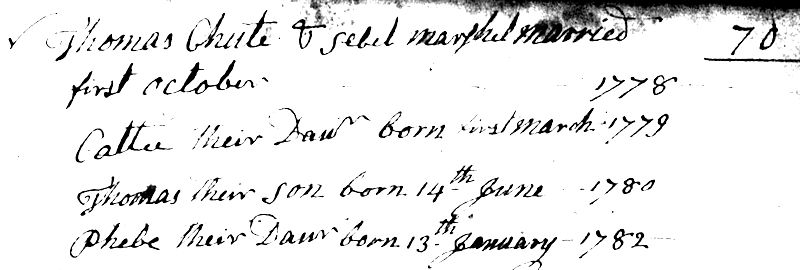 ✓ Thomas Chute & Sebel Marshel married 70
first october 1778
Cattee their Dawr born first March 1779
Thomas their son born 14th June 1780
Phebe their Dawr born 13th January 1782